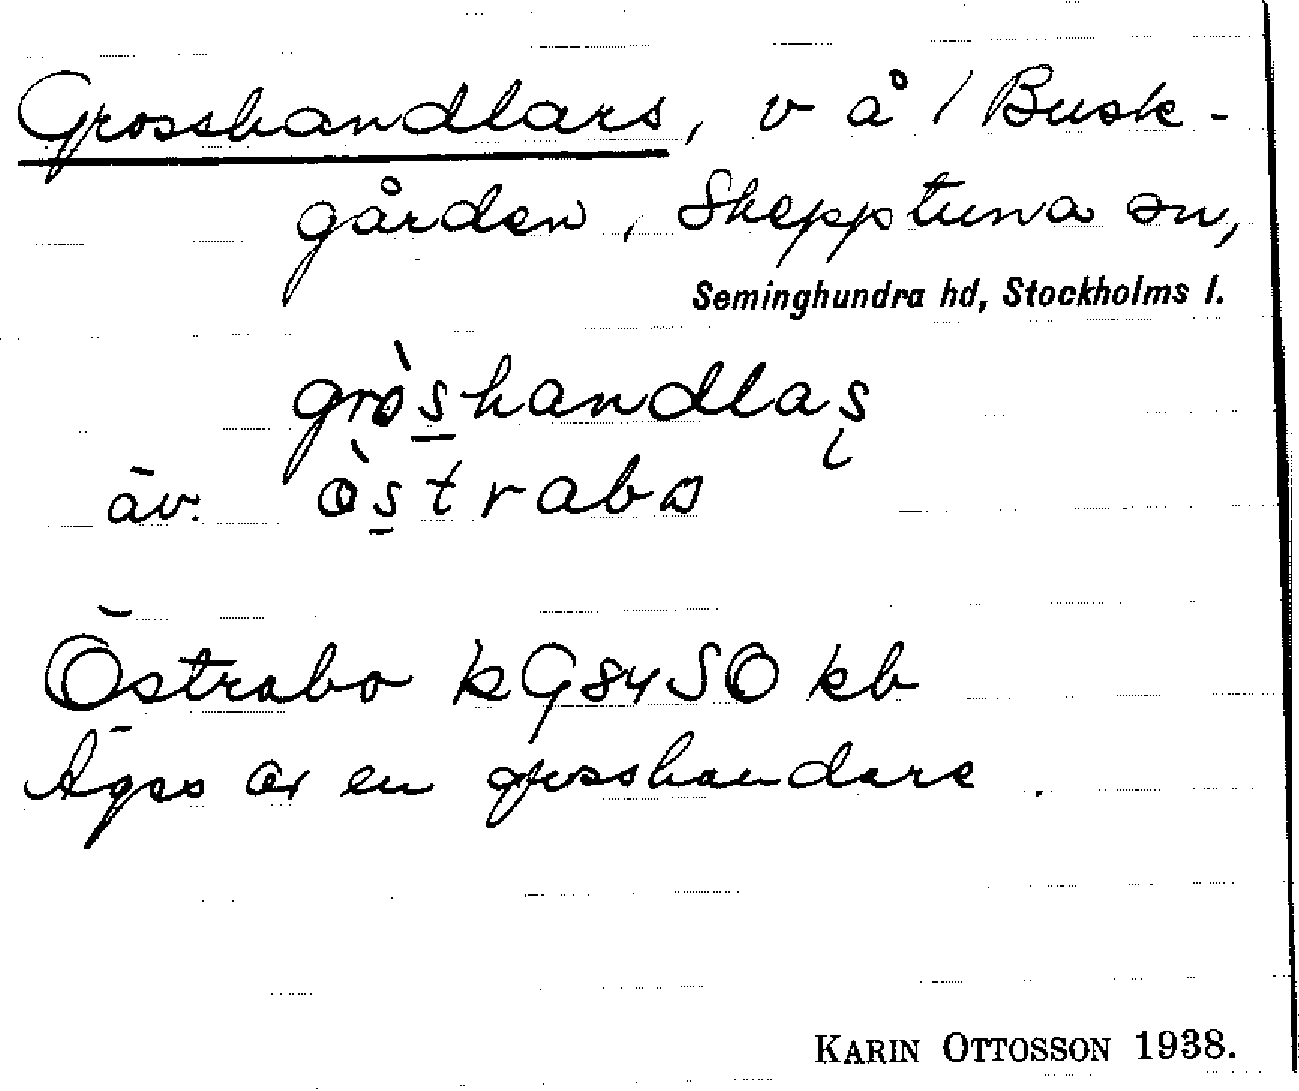 Grosshandlars, v å / Busk-
gården, Skepptuna sn,
Seminghundra hd, Stockholms l.
gròshandlas
äv. òstrabo
Östrabo kG84SO kb
Äges av en grosshandare.
KARIN OTTOSSON 1938.